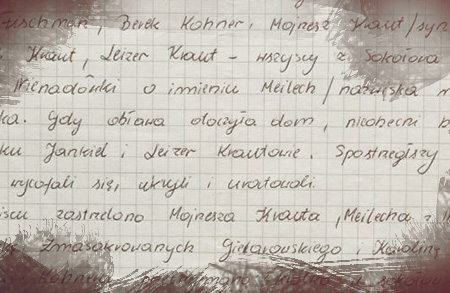 Fuschman, Berek Kohner, Mojżesz Kraut /syn
Kraut, Leizer Kraut - wszyscy z Sokołowa
Nienadówki o imieniu Meilech / nazwiska n
ka. Gdy obława otoczyła dom, nieobecni b
ku Jankiel i Leizer Krautowie. Spostrzegłszy
wycofali się, ukryli i uratowali.
iscu zastrzelono Mojżesza Krauta, Meilecha z
Zmasakrowanych Gielarowskiego i Karoliny
Kohnera przetrzymano